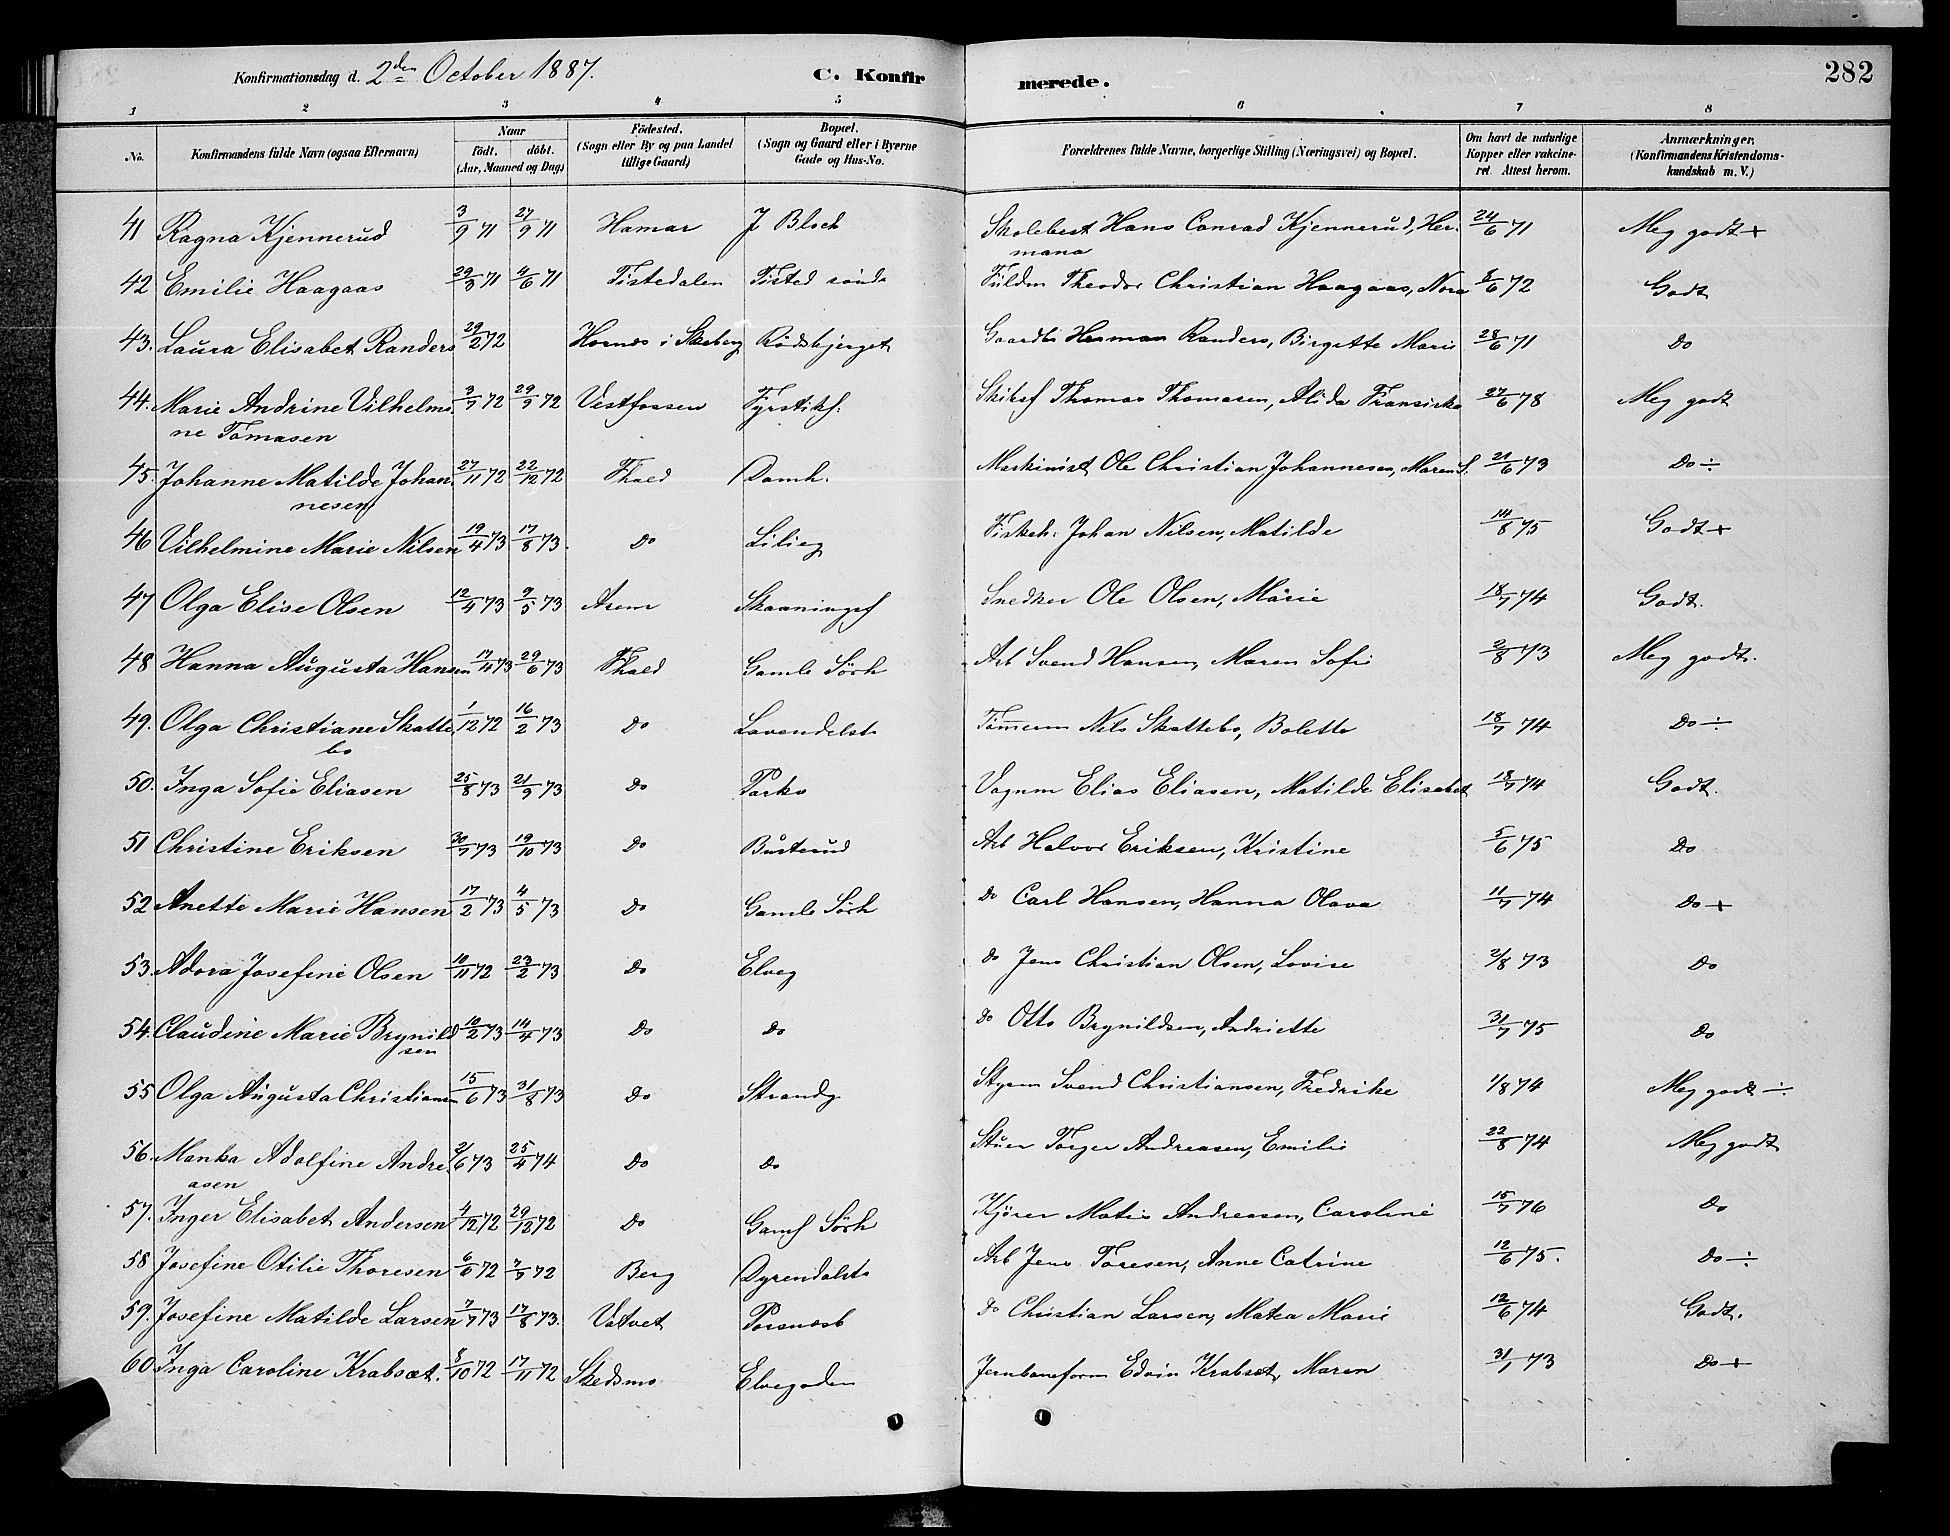 Konfirmationsdag d. 2den October 1887.
C. Konfir
merede.
282
1 2 3 4 5 6 7 8
No.
Konfirmandens fulde Navn (ogsaa Efternavn)
Naar
født, døbt.
(Aar, Maaned og Dag)
Fødested.
(Sogn eller By og paa Landet
tillige Gaard)
Bopæl.
(Sogn og Gaard eller i Byerne
Gade og Hus-No.
Forældrenes fulde Navne, borgerlige Stilling (Næringsvei) og Bopæl.
Om havt de naturlige
Kopper eller vakcine-
ret. Attest herom.
Anmærkninger.
(Konfirmandens Kristendoms-
kundskab m. V.)
41 Ragna Kjennerud 3/9 71 27/9 71 Hamar J Bloch Skolebest Hans Conrad Kjennerud, Her- 24/6 71 Meg godt +
mana
42 Emilie Haagaas 29/3 71 4/6 71 Tistedalen Tisted søndr Fuldm Theodor Christian Haagaas, Nora 8/6 72 Godt
43. Laura Elisabet Randers 29/2 72 Hornes i Skeberg Rødsbjerget Gaardb Herman Randers, Birgitte Marie 28/6 71 Do
44. Marie Andrine Vilhelmi 3/7 72 29/9 72 Vestfossen Fyrstikf. Skibsf Thomas Thomasen, Alida Fransiska 27/6 78 Meg godt
ne Tomasen
45. Johanne Matilde Johan 27/11 72 22/12 72 Fhald Damh. Maskinist Ole Christian Johannesen, Maren S. 21/6 73 Do ÷
nesen
46 Vilhelmine Marie Nilsen 19/4 73 17/8 73. Do Lilieg Fiskeh. Johan Nilsen, Matilde 14/8 75 Godt +
47 Olga Elise Olsen 12/4 73 9/5 73 Asem Skaaningsf Snedker Ole Olsen, Marie 18/7 74 Godt.
48 Hanna Augusta Hansen 17/4 73 29/6 73 Fhald Gamle Sørh Arb Svend Hansen, Maren Sofie 2/8 73 Meg godt.
49. Olga Christiane Skatte 1/12 72 16/2 73 Do Lavendelst Tømerm Nils Skattebo, Bolette 18/7 74 Do ÷
bo
50. Inga Sofie Eliasen 25/8 73 21/9 73 Do Parko Vognm Elias Eliasen, Matilde Elisabet 18/7 74 Godt.
51 Christine Eriksen 30/7 73 19/10 73 Do Busterud Arb Halvor Eriksen, Kristine 5/6 75 Do
52 Anette Marie Hansen 17/2 73 4/5 73 Do Gamle Sørh Do Carl Hansen, Hanna Olava 11/7 74 Do +
53. Adora Josefine Olsen 10/11 72 23/2 73 Do Elveg Do Jens Christian Olsen, Lovise 2/8 73 Do
54. Claudine Marie Brynild 10/2 73 14/4 73 Do Do Do Otto Brynildsen, Andriette 31/7 75 Do
sen
55 Olga Augusta Christiansen 15/6 73 31/8 73 Do Strandg Styrm Svend Christiansen, Fredrike 1/8 74 Meg godt ÷
56. Manka Adolfine Andre 2/6 73 25/4 74 Do Do Stuer Torger Andreasen, Emilie 22/8 74 Meg godt
asen
57. Inger Elisabet Andersen 4/12 72 29/12 72 Do Gaml Sørh Kjører Matis Andreasen, Caroline 15/7 76 Do
58 Josefine Otilie Thoresen 6/6 72 7/7 72 Berg Dyrendalst Arb Jens Toresen, Anne Catrine 12/6 75. Do ÷
59. Josefine Matilde Larsen 7/7 73 17/8 73. Vatvet Porsnæsb Do Christian Larsen, Matea Marie 12/6 74 Godt.
60 Inga Caroline Krabsæt. 8/10 72 17/11 72 Skedsmo Elvegaden Jernbaneform Edvin Krabsæt, Maren 31/7 73 Do +